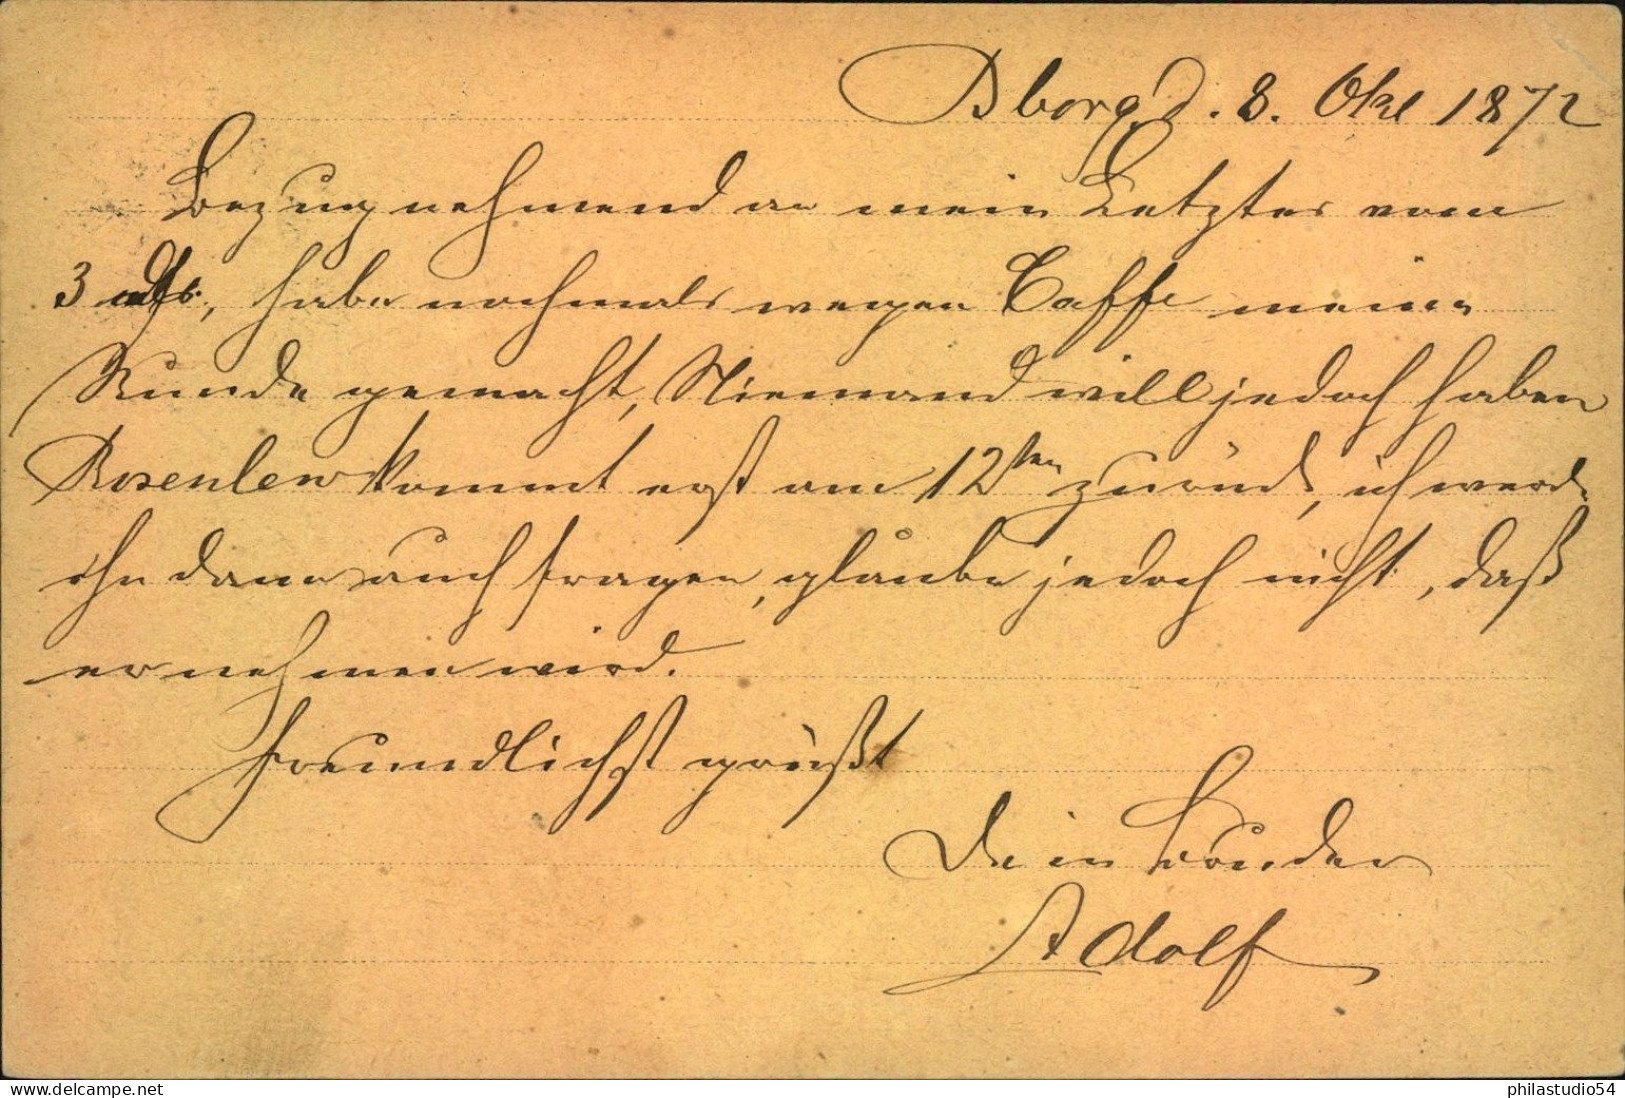 Bborg, d. 8. Okt 1872
Bezugnehmend an mein Letztes vom
3 ds., habe nochmals wegen Caffe meine
Runde gemacht, Niemand will jedoch haben
Rosenlew kommt erst am 12ten zurück, ich werde
ihn dann auch fragen, glaube jedoch nicht, daß
er nehmen wird.
Freundlichst grüßt
Dein Bruder
Adolf
delcampe.net
philastudio54